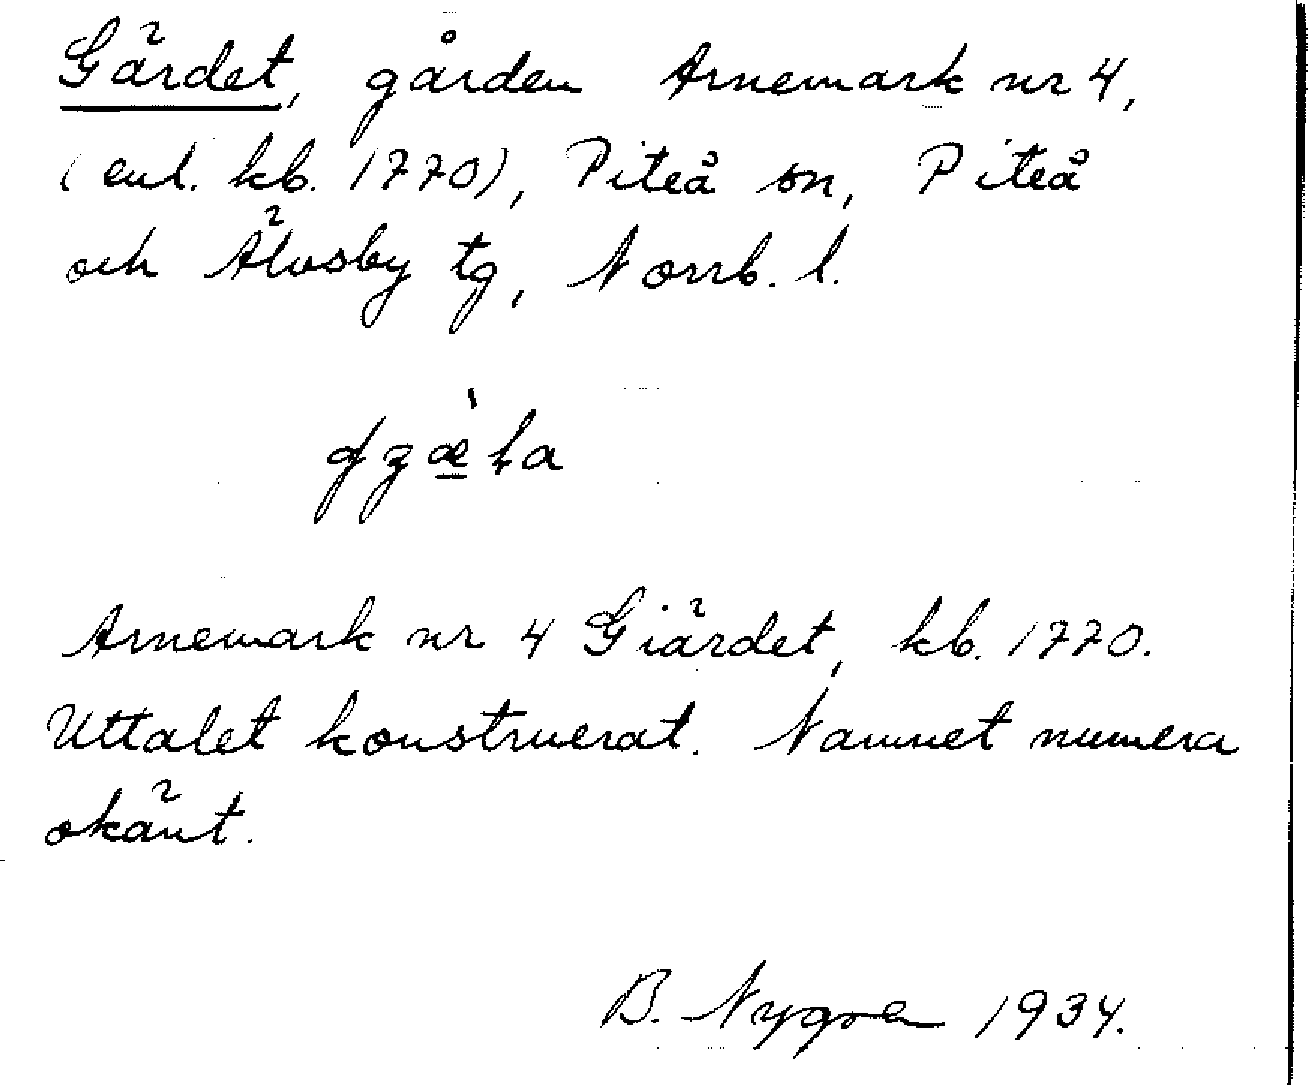 Gärdet, gården Arnemark nr 4,
(enl. kb. 1770), Piteå sn, Piteå
och Älvsby tg, Norrb. l.
Arnemark nr 4 Giärdet, kb. 1770.
Uttalet konstruerat. Namnet numera
okänt.
B. Nygren 1934.